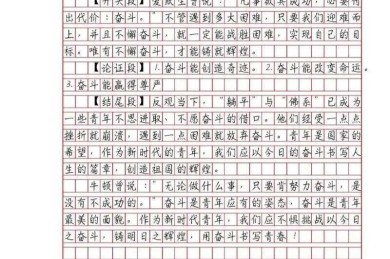 【开头段】爱默生曾说:"凡事欲其成功,必要付
出代价:奋斗。"不管遇到多大困难,只要我们迎难而
上,并且不懈奋斗,就一定能战胜困难,实现自己的目
标。唯有不懈奋斗,才能铸就辉煌。
【论证段】1.奋斗能创造奇迹。2.奋斗能改变命运。
3.奋斗能赢得尊严
【结尾段】反观当下,"躺平"与"佛系"已成为
一些青年不思进取、不愿奋斗的借口。他们经受一点点
挫折就崩溃,遇到一点困难就放弃奋斗。青年是国家的
希望,作为新时代的青年,我们应以今日的奋斗书写人
生的篇章,创造祖国的辉煌。
牛顿曾说:"无论做什么事,只要肯努力奋斗,是
没有不成功的。"奋斗是青年应有的姿态,奋斗是青年
最美的面貌。作为新时代青年,我们应不惧挑战以今日
之奋斗,铸明日之辉煌,用奋斗书写青春!